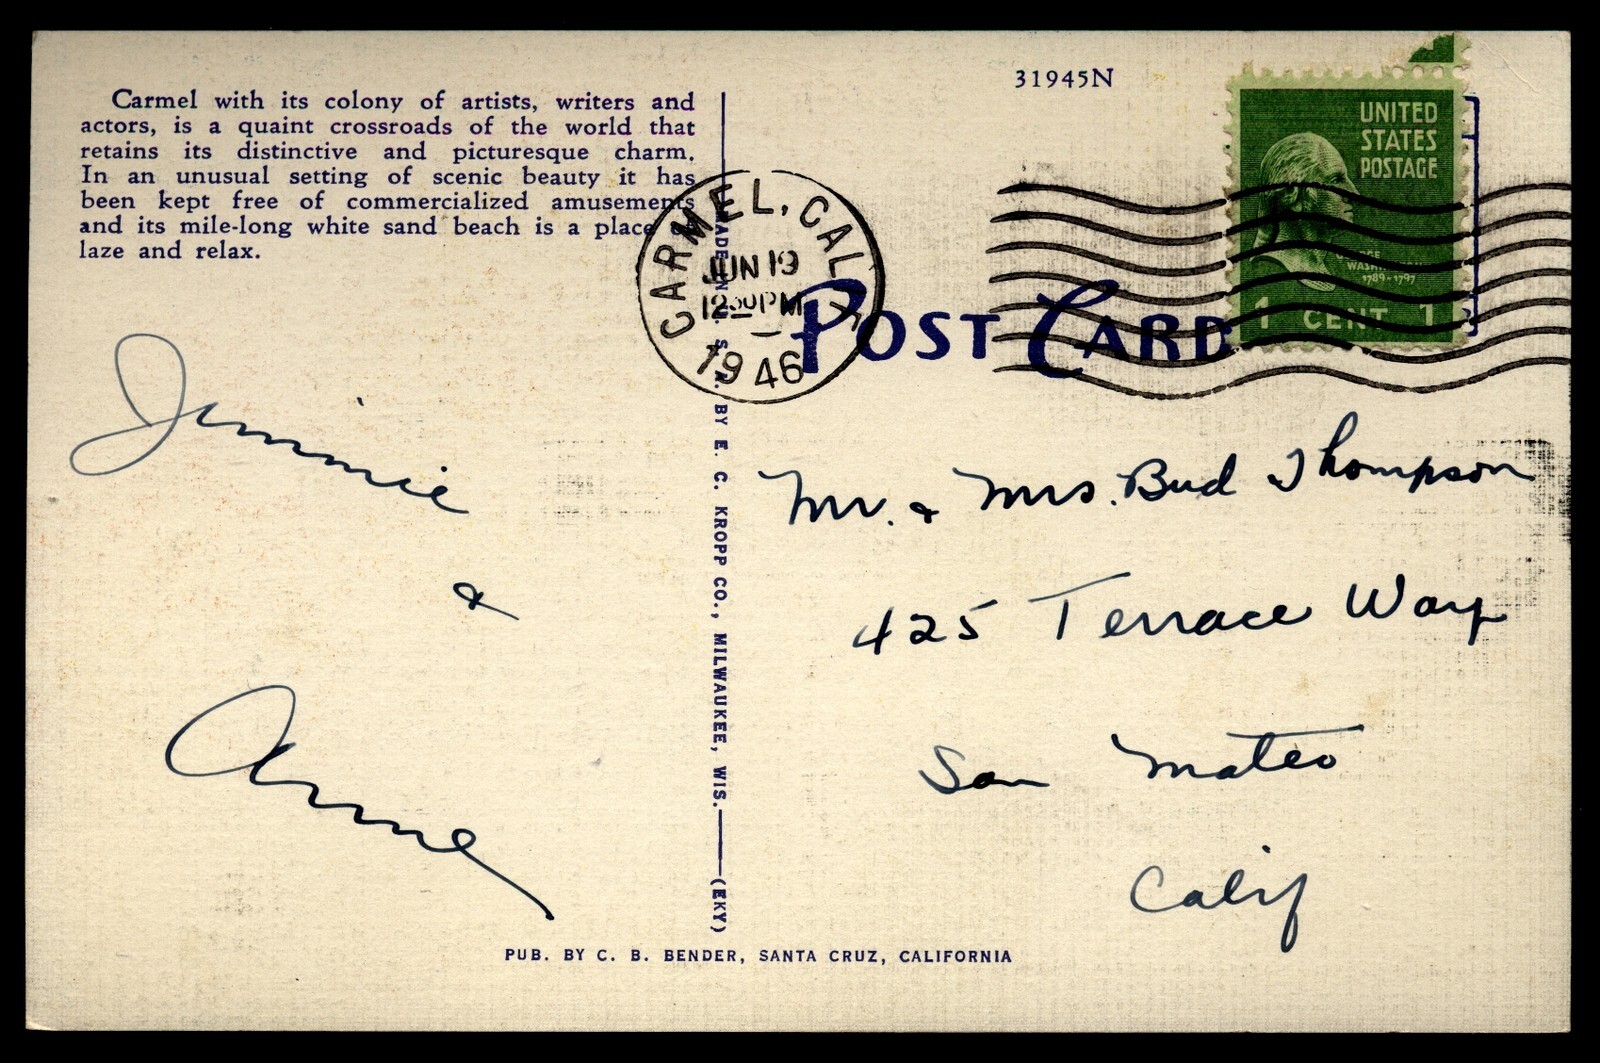 Carmel with its colony of artists, writers and
actors, is a quaint crossroads of the world that
retains its distinctive and picturesque charm.
In an unusual setting of scenic beauty it has
been kept free of commercialized amusements
and its mile-long white sand beach is a place
laze and relax.
31945N
UNITED
STATES
POSTAGE
GEORGE
WASHINGTON
1789-1797
1 CENT 1
CARMEL, CALIF.
JUN 19
12 30 PM
1946
POST CARD
Jimmie
&
Anne
MADE IN U. S. A. BY E. C. KROPP CO., MILWAUKEE, WIS. (EKY)
Mr. & Mrs. Bud Thompson
425 Terrace Way
San Mateo
Calif
PUB. BY C. B. BENDER, SANTA CRUZ, CALIFORNIA